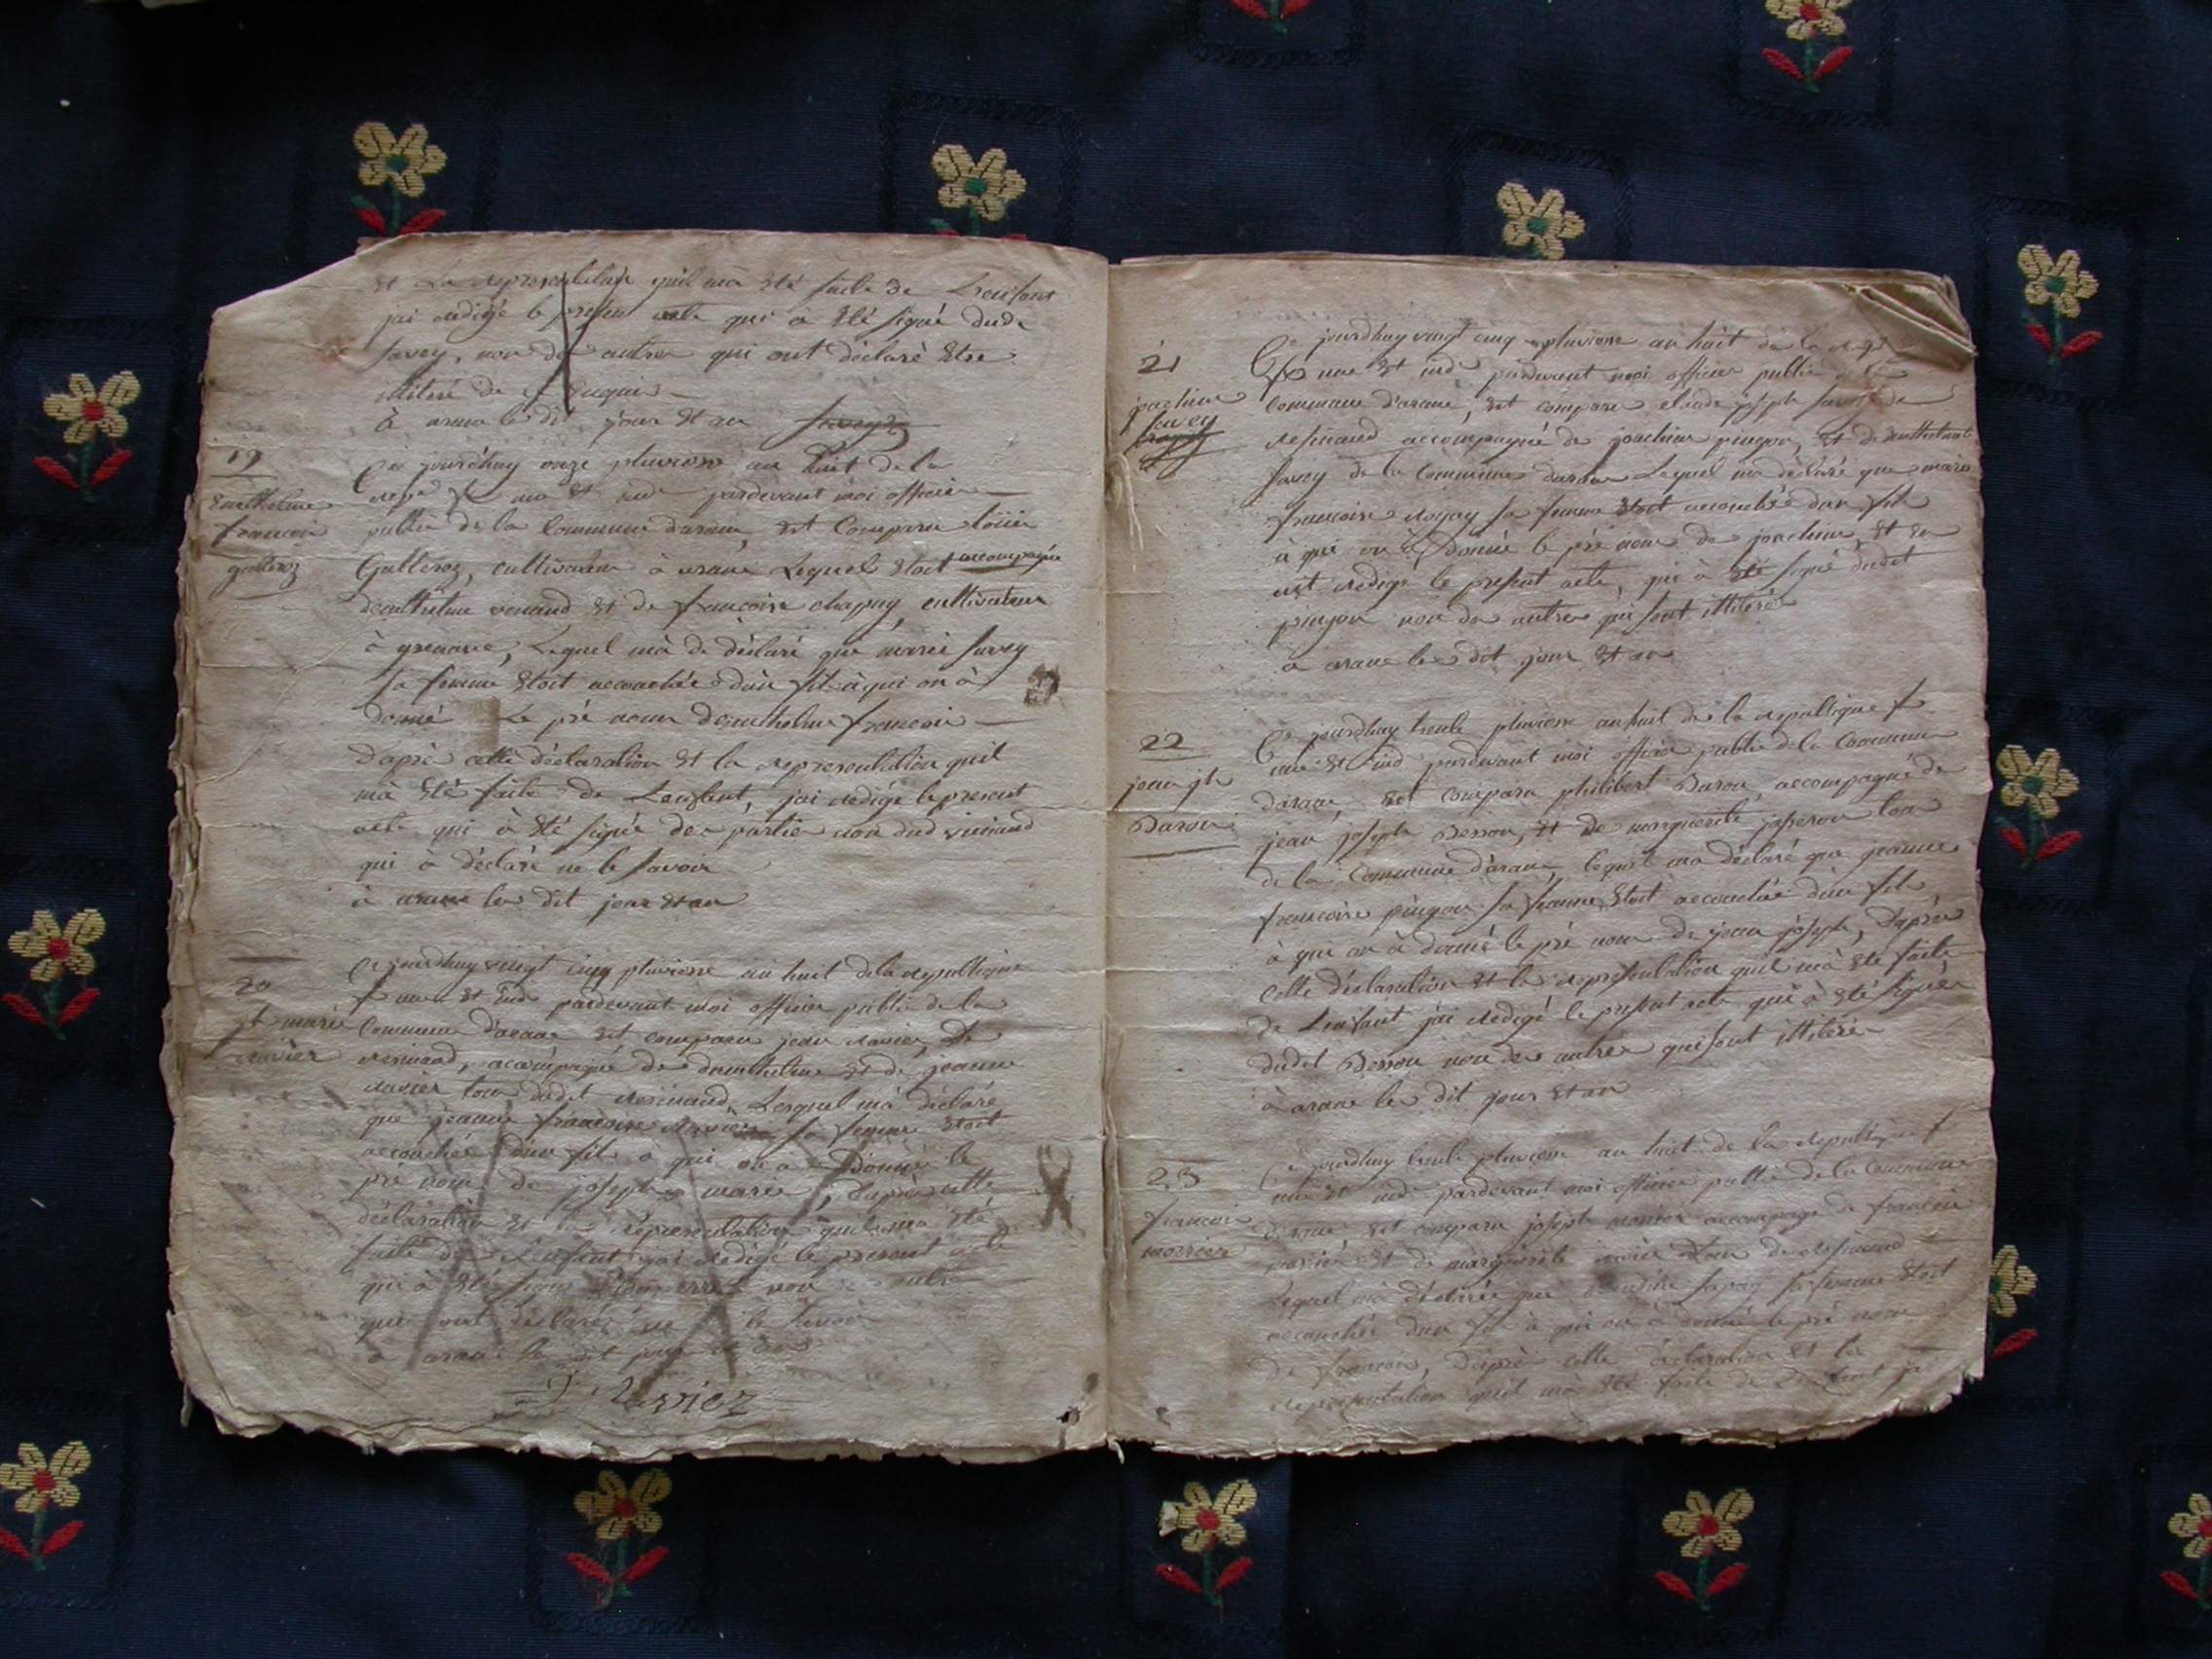 et la representation quil ma été faite de Lenfant
jai redigé le present acte qui a été signé dud.
savey, non des autres qui ont déclaré etre
illiteré de ce enquis
à arane le dit jour et an savey
19
Enthelme
francois
gallioz
Ce jourdhuy onze pluviose an huit de la
rep. f. une et ind. pardevant moi officier
public de la Commune darane, est Comparu
cultivateur à arane Lequel etoit accompagné
denthelme et de francoise chapuy, cultivateur
à Lequel mà déclaré que marie savey
sa femme etoit accouchée dun fils à qui on à
donné Le pré nom denthelme francois
daprès cette déclaration et la representation quil
mà été faite de Lenfant, jai redigé le present
acte qui à été signé des parties non dud
qui à déclaré ne le savoir
à arane les dit jour et an
20
jh. marie
ravier
Ce jourdhuy vingt cinq pluviose an huit dela republique
f. une et ind. pardevant moi officier public de la
Commune darane est comparu jean ravier de
resinand, accompagné de danthelme et de jeanne
ravier tous dudit resinand Lesquel mà déclaré
que jeanne francoise sa femme etoit
accouchée dun fils a qui on a donné le
pré nom de joseph marie, daprès cette
déclaration et la representation quil ma été
faite de Lenfant jai redigé le present acte
qui à été signé non autre
qui ont déclarés ne le savoir
a arane le dit jour et an
Ravier
21
joachim
savey
Ce jourdhuy vingt cinq pluviose an huit de la rep.
f. une et ind. pardevant moi officier public de la
Commune darane, est comparu claude joseph savey de
resinand accompagné de joachim pingon et de
savey de la Commune darane Lequel mà déclaré que marie
francoise sa femme etoit accouchée dun fils
à qui on à donné le pré nom de joachim, et en
ait redigé le present acte, qui à été signé dudit
pingon non des autres qui sont illiterés
a arane les dit jour et an
22
jean jh
Baron
Ce jourdhuy trente pluviose an huit de la republique f.
une et ind. pardevant moi officier public dela Commune
darane, est comparu philibert Baron, accompagné de
jean joseph Besson, et de marguerite josseron tous
de la Commune darane, lequel ma déclaré que jeanne
francoise pingon sa femme etoit accouchée dun fils,
à qui on à donné le pré nom de jean joseph, Daprès
cette déclaration et la representation quil mà été faite
de Lenfant jai redigé le present acte qui à été signé
dudit Besson non des autres qui sont illiteré
à arane les dit jour et an
23
francois
monnier
Ce jourdhuy trente pluviose an huit de la republique f.
une et ind. pardevant moi officier public de la Commune
darane, est comparu joseph monnier accompagné de francois
monnier et de marguerite ravier tous de resinand
Lequel mà déclaré que savey sa femme etoit
accouchée dun fils à qui on à donné le pré nom
de francois, daprès cette déclaration et la
representation quil mà été faite de Lenfant jai